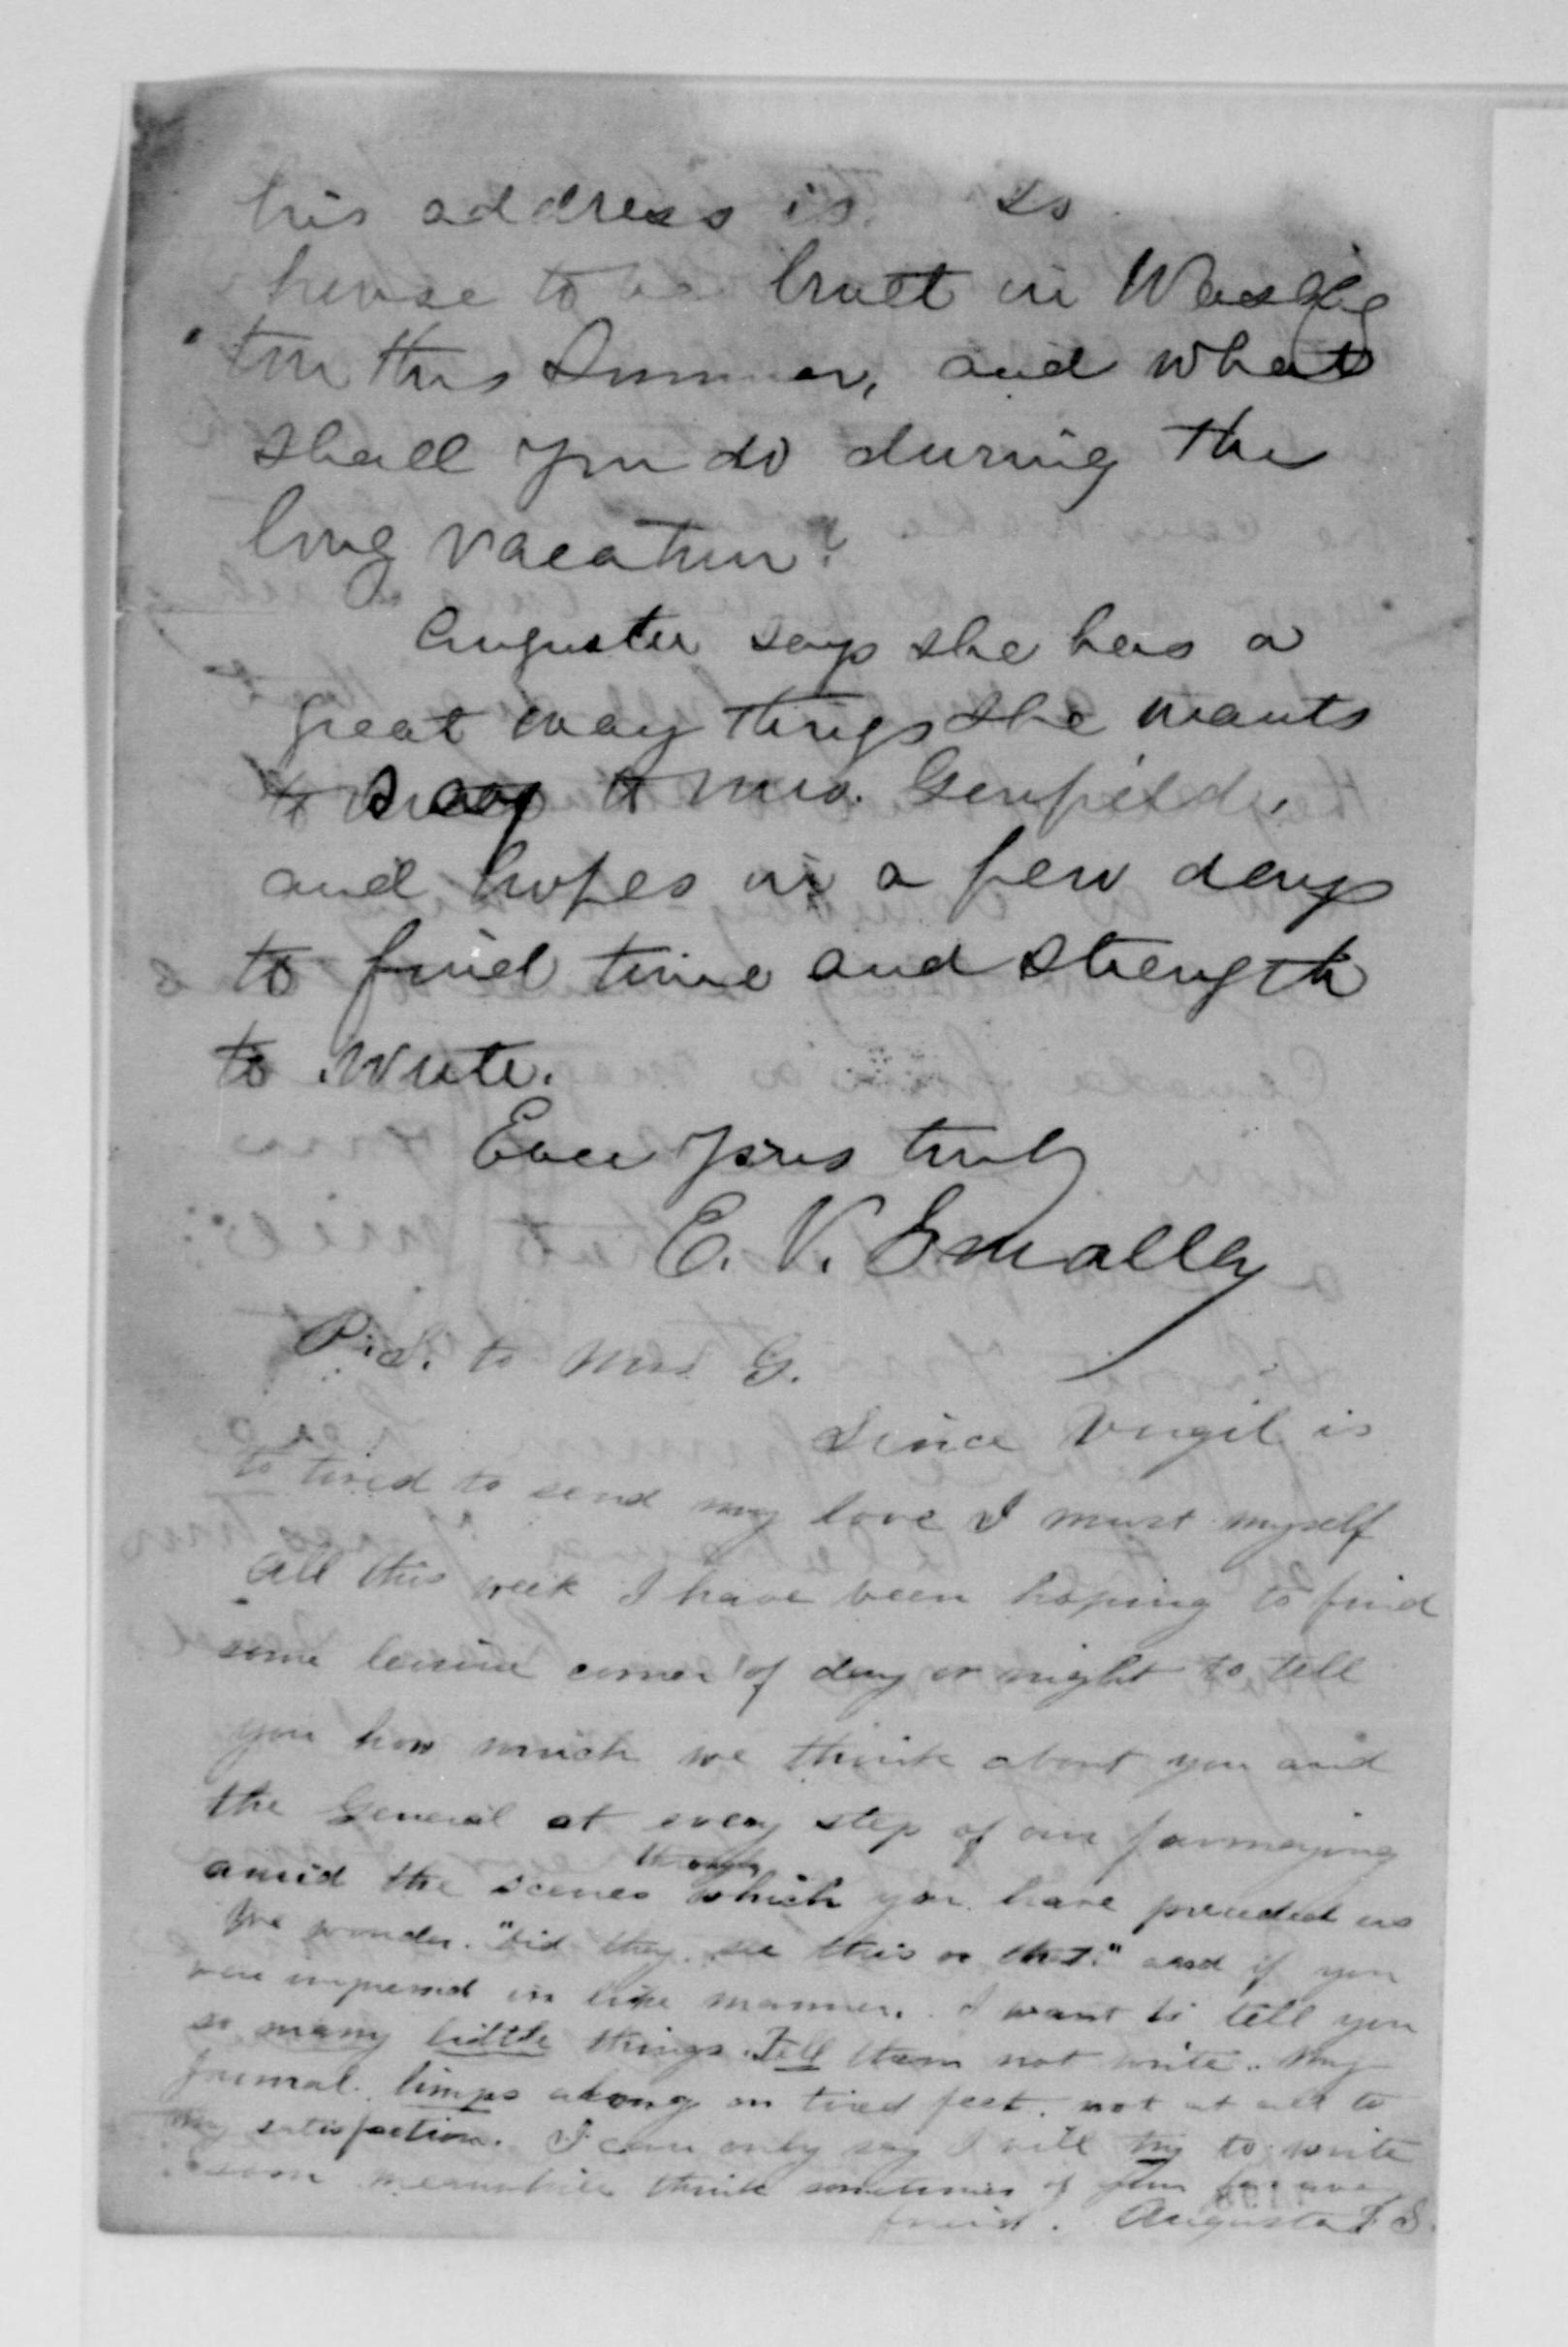 his address is. Is
house to be built in Washing
ton this Summer, and what
shall you do during the
long vacation?
Augusta says she has a
great many things she wants
to say to Mrs. Garfield,
and hopes in a few days
to find time and strength
to write.
Ever yours truly
E. V. Smalley
P.S. to Mrs G.
Since Virgil is
to tired to send my love I must myself
All this week I have been hoping to find
some leisure corner of day or night to tell
you how much we think about you and
the General at every step of our journeying
amid the scenes through which you have preceded us
We wonder. "Did they see this or that." and if you
were impressed in like manner. I want to tell you
so many little things. Tell them not write. My
journal limps along on tired feet. not at all to
my satisfaction. I can only say I will try to write
soon meanwhile think sometimes of your far away
friend. Augusta F. S.